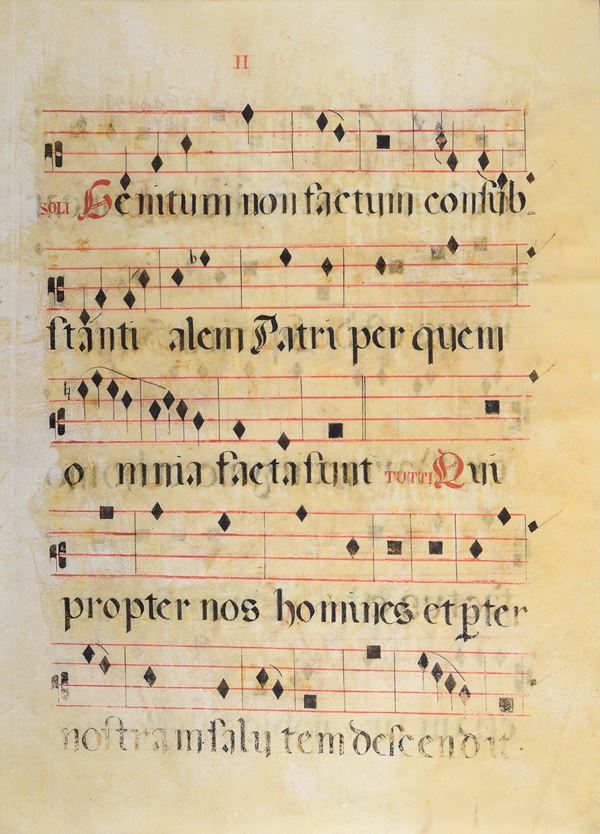 II
SOLI Genitum non factum consub-
stanti alem Patri per quem
o mnia facta sunt TUTTI Qui
propter nos homines et ꝓter
nostram salu tem descendit.